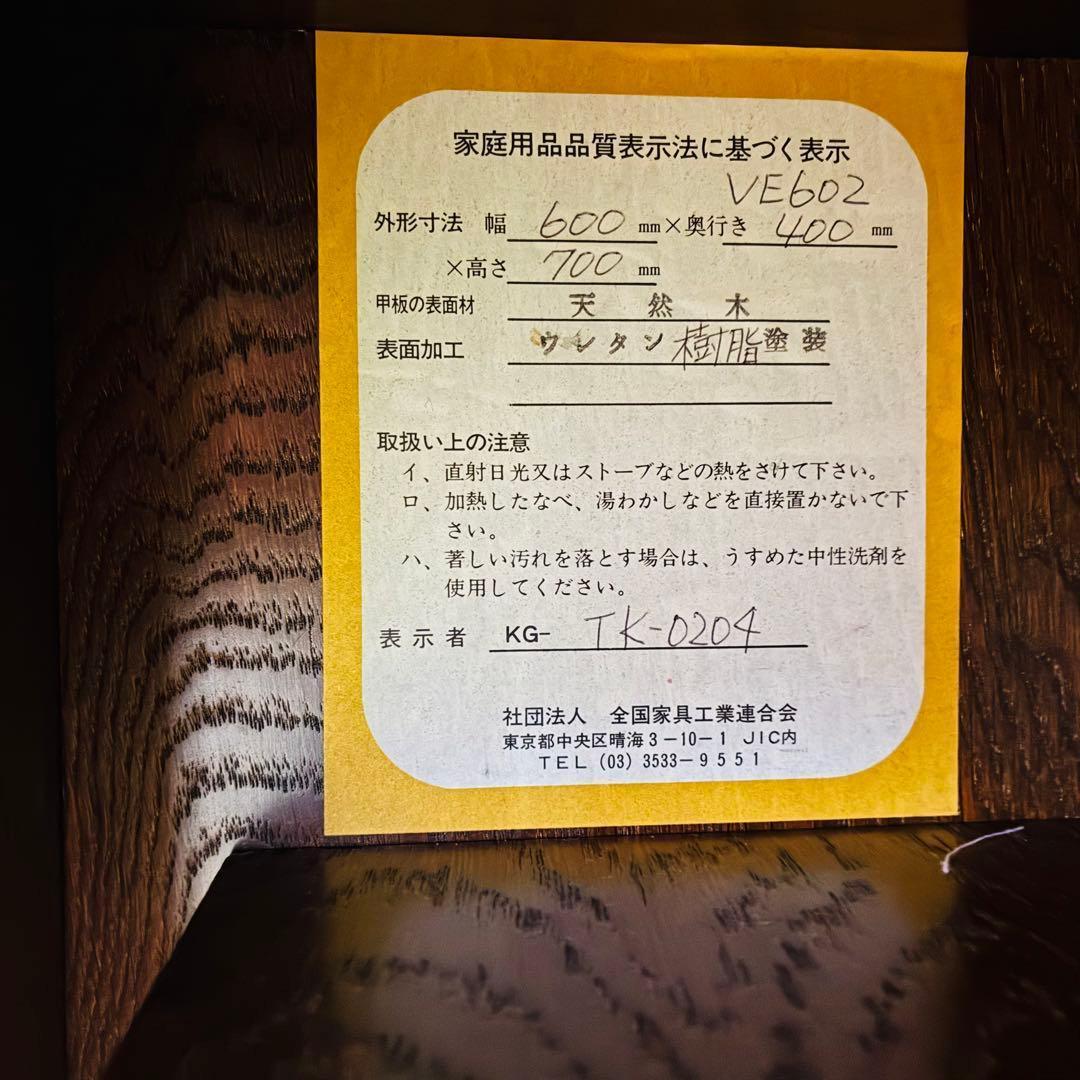 家庭用品品質表示法に基づく表示
VE602
外形寸法 幅 600 mm×奥行き 400 mm
×高さ 700 mm
甲板の表面材 天然木
表面加工 ウレタン樹脂塗装
取扱い上の注意
イ、直射日光又はストーブなどの熱をさけて下さい。
ロ、加熱したなべ、湯わかしなどを直接置かないで下
さい。
ハ、著しい汚れを落とす場合は、うすめた中性洗剤を
使用してください。
表示者 KG- TK-0204
社団法人 全国家具工業連合会
東京都中央区晴海3-10-1 JIC内
TEL (03) 3533-9551